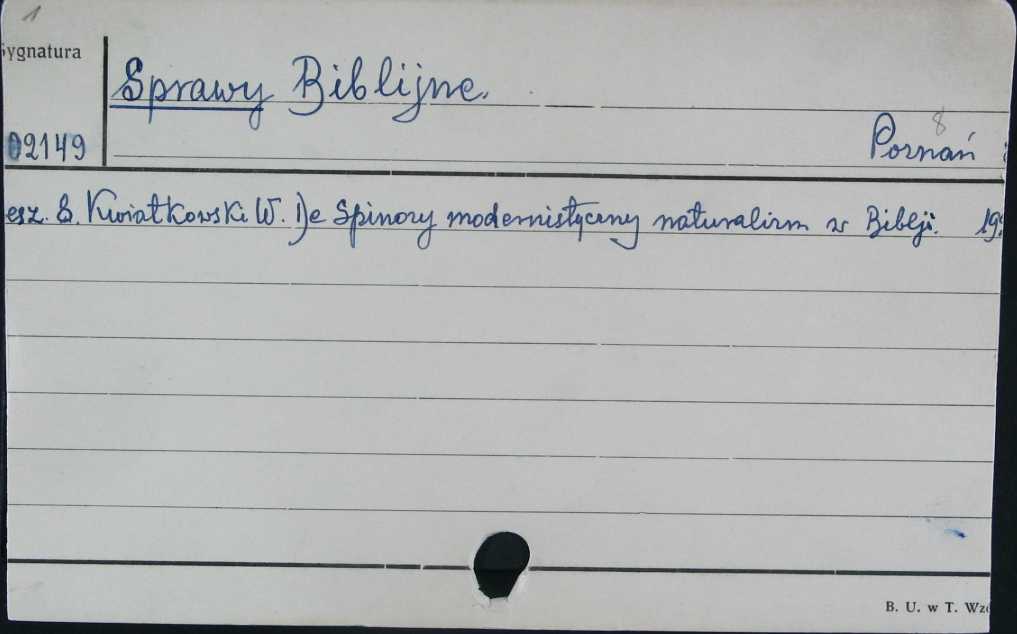 1
Sygnatura
Sprawy Biblijne.
8
02149
Poznań
esz. 8. Kwiatkowski W. De Spinozy modernistyczny naturalizm w Biblji. 19
B. U. w T. Wzó